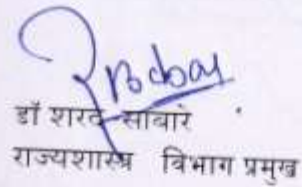 डॉ शरद साबारे
राज्यशास्त्र विभाग प्रमुख